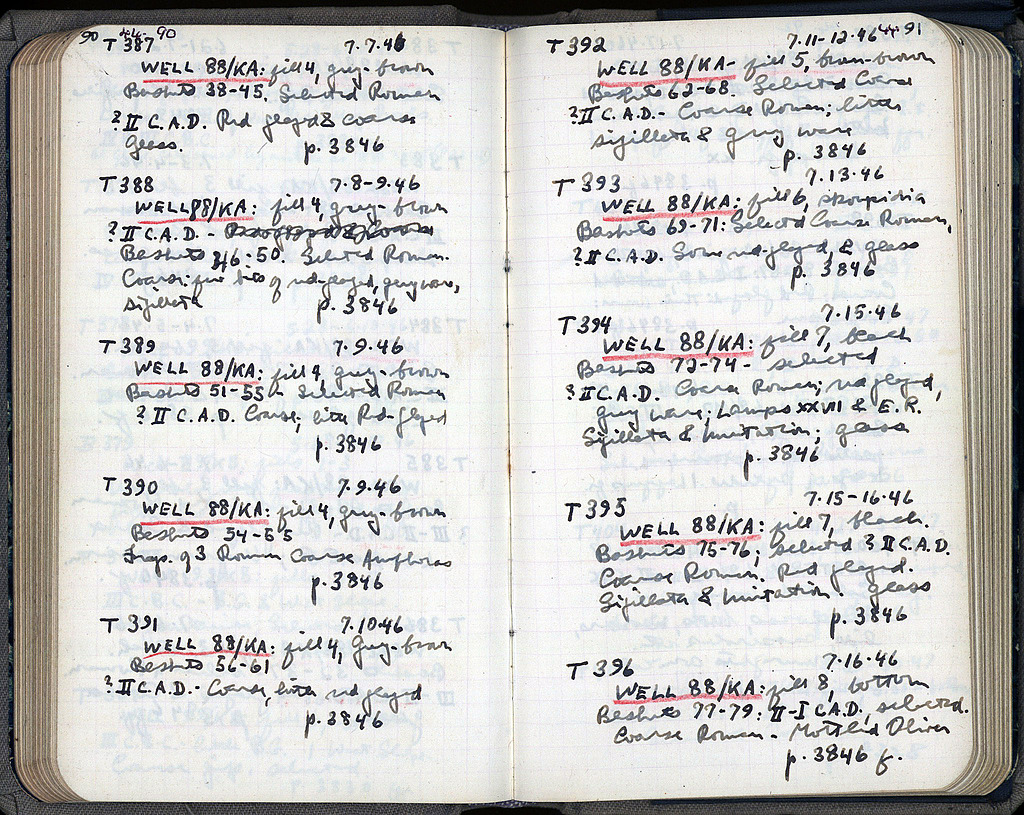 90 44-90
T 387 7.7.46
WELL 88/KA: fill 4, grey-brown
Baskets 38-45. Selected Roman
? II C.A.D. Red glazed & coarse
glass. p. 3846
T 388 7.8-9.46
WELL 88/KA: fill 4, grey-brown
? II C.A.D. -
Baskets 46-50. Selected Roman.
Coarse: few bits of red-glazed, grey ware,
sijillata p. 3846
T 389 7.9.46
WELL 88/KA: fill 4, grey-brown
Baskets 51-55 - Selected Roman
? II C.A.D. Coarse; little Red-glazed
p. 3846
T 390 7.9.46
WELL 88/KA: fill 4, grey-brown
Baskets 54-55
Frag. of 3 Roman Coarse Amphoras
p. 3846
T 391 7.10.46
WELL 88/KA: fill 4, Grey-brown
Baskets 56-61
? II C.A.D. - Coarse, little red glazed
p. 3846
44-91
T 392 7.11-12.46
WELL 88/KA- fill 5, brown-brown
Baskets 62-68. Selected Coarse
? II C.A.D. - Coarse Roman; little
sijillata & grey ware
p. 3846
T 393 7.13.46
WELL 88/KA: fill 6, skoupidia
Baskets 69-71: Selected Coarse Roman,
? II C.A.D. Some red-glazed, & glass
p. 3846
T 394 7.15.46
WELL 88/KA: fill 7, black
Baskets 72-74 - selected
? II C.A.D. Coarse Roman; red glazed,
grey ware; Lamps XXVII & E.R.
Sijillata & Imitation; glass
p. 3846
T 395 7.15-16.46
WELL 88/KA: fill 7, black.
Baskets 75-76; selected ? II C.A.D.
Coarse Roman. Red glazed.
Sijillata & Imitation. glass
p. 3846
T 396 7.16.46
WELL 88/KA: fill 8, bottom
Baskets 77-79: II-I C A.D, selected.
Coarse Roman - Mottled Oliver
p. 3846 f.